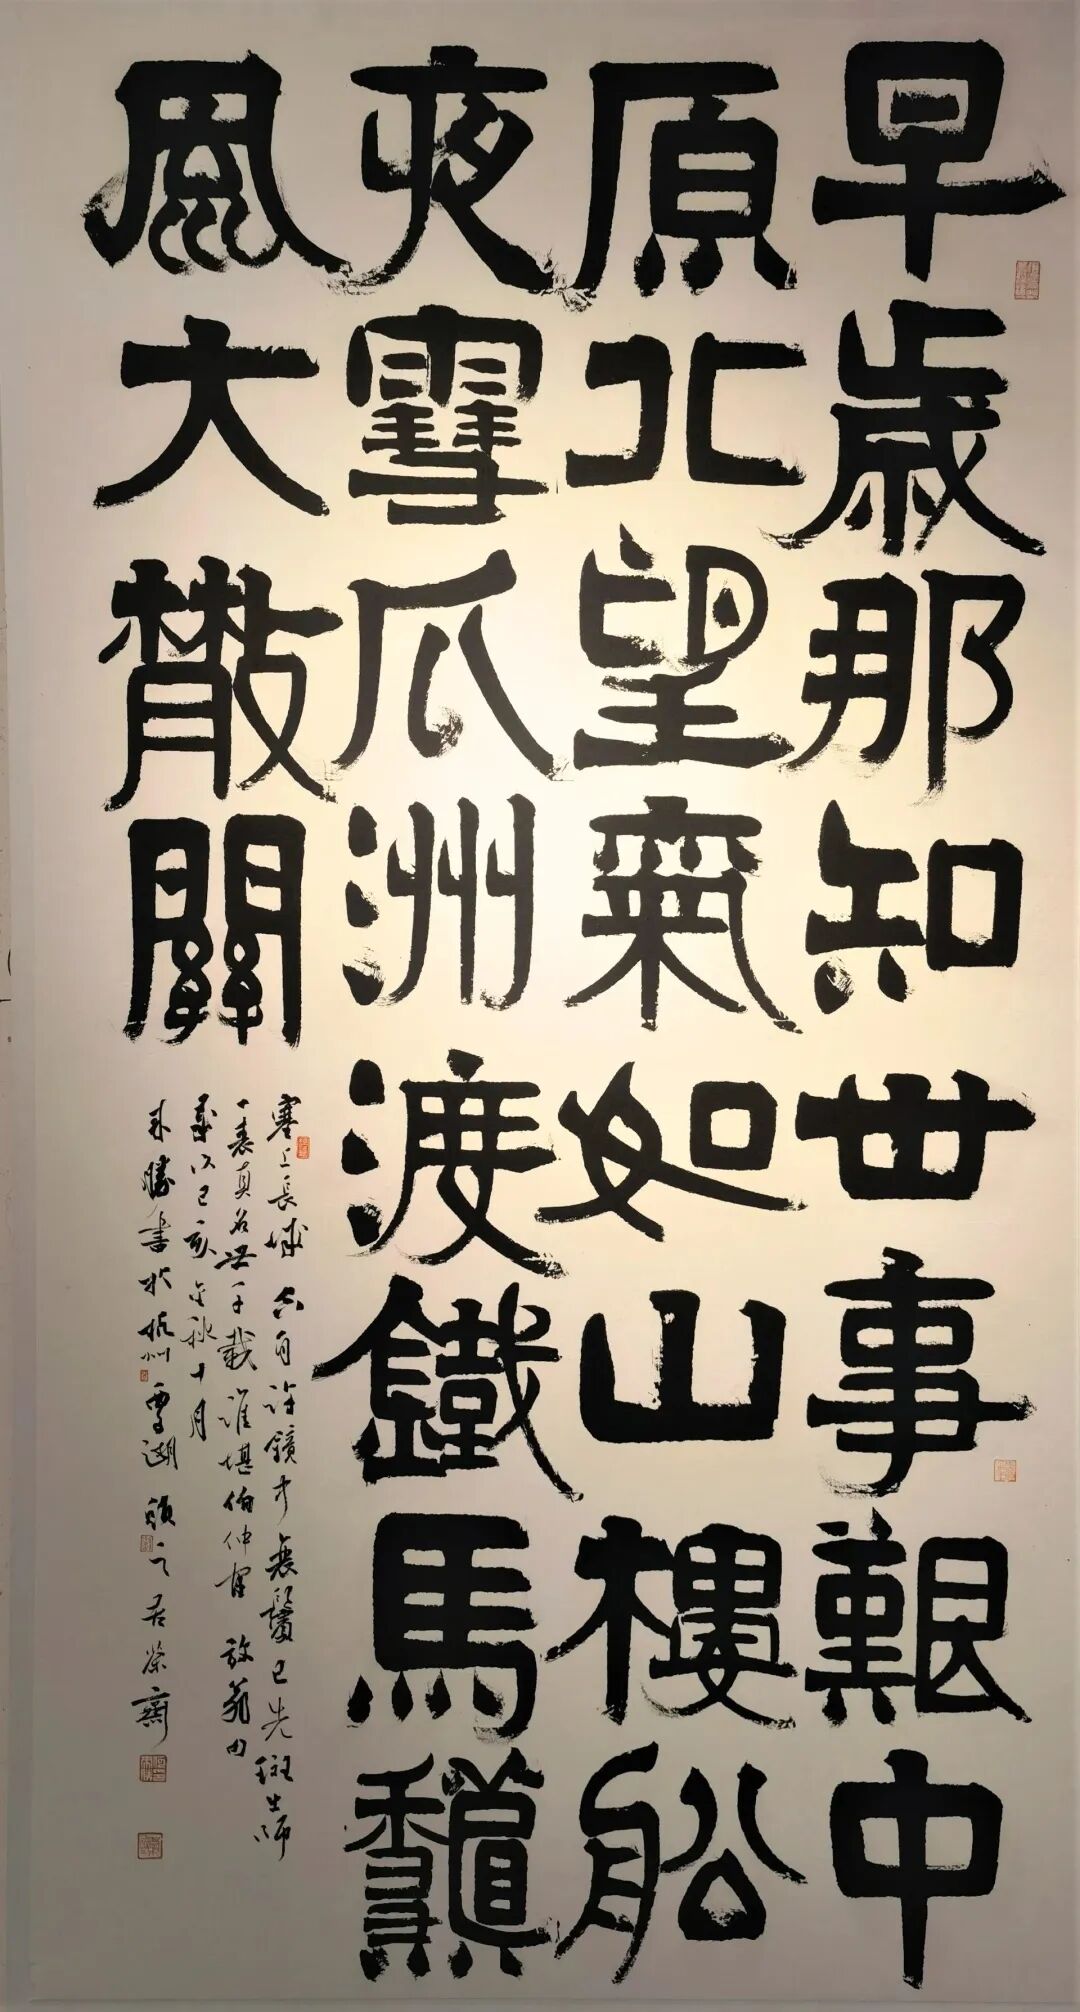 早歲那知世事艱中
原北望氣如山樓舩
夜雪瓜洲渡鐵馬龝
風大散關
塞上長城空自許鏡中衰鬢已先斑出師
一表真名世千載誰堪伯仲間放翁句
歲次己亥年秋十月
勝書於杭州湖之居榮齋